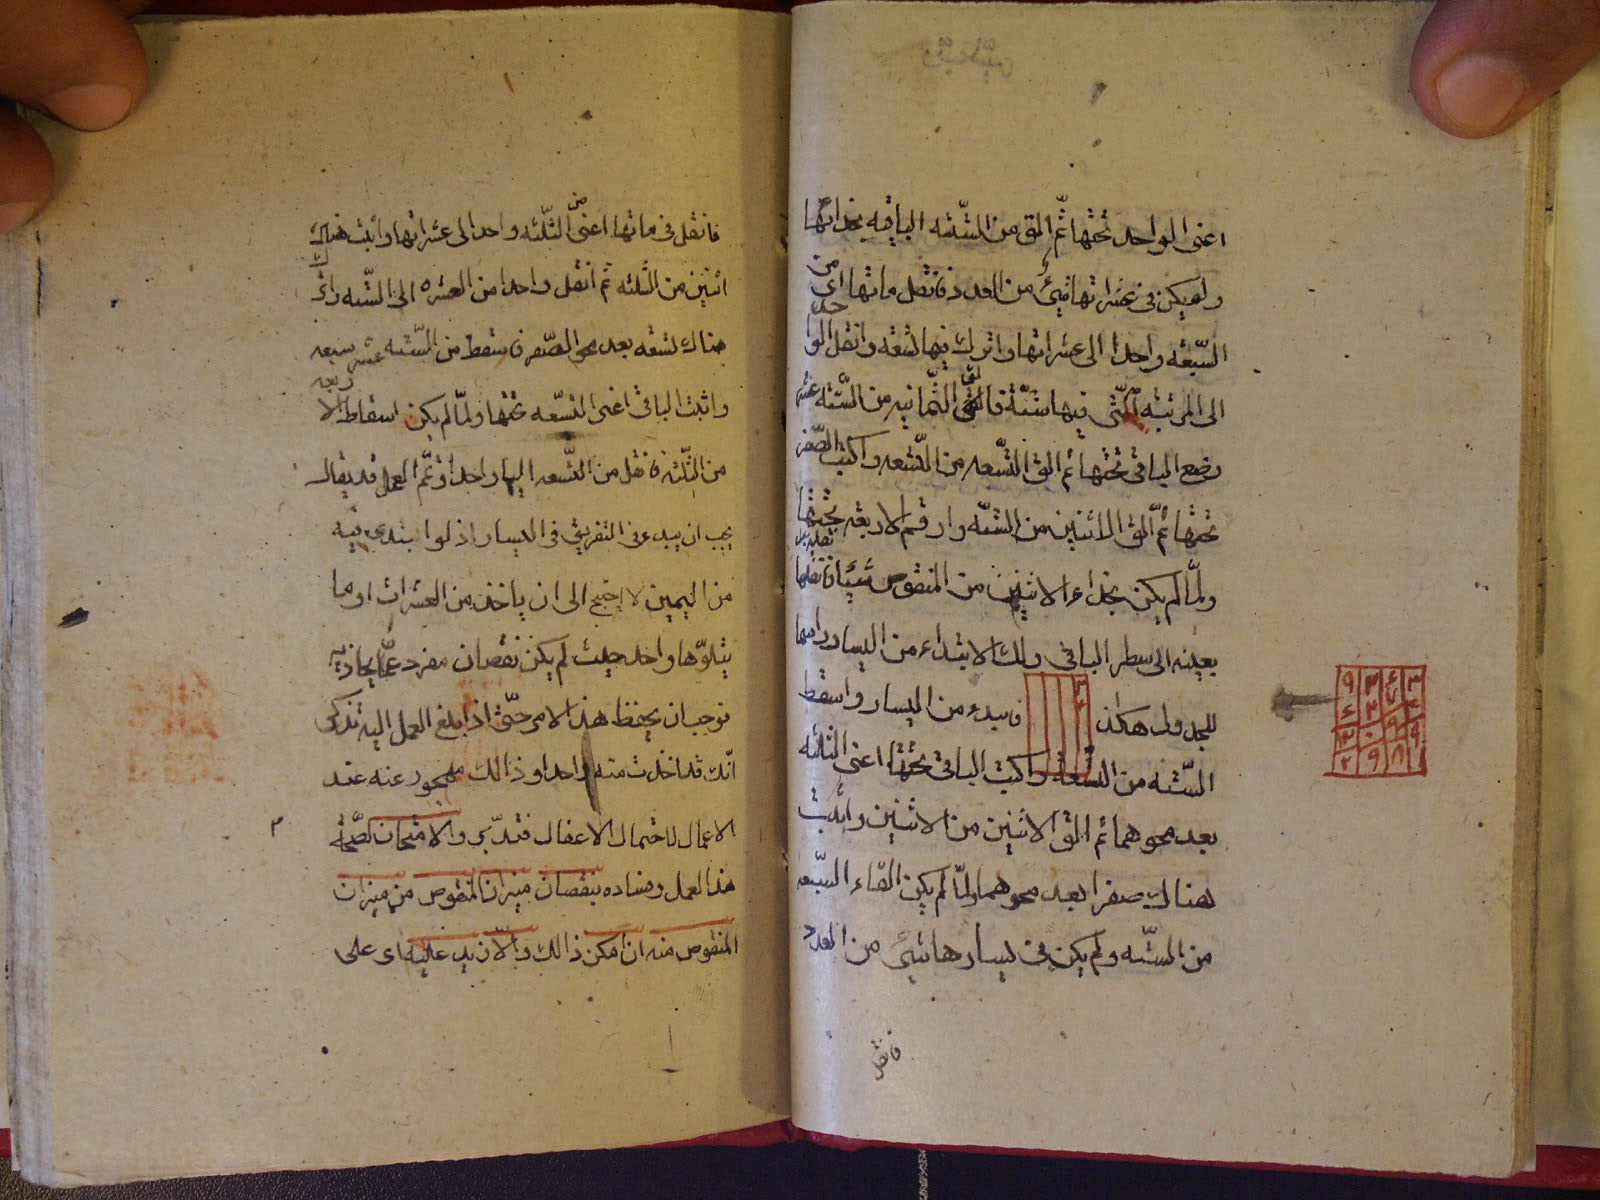 اعنى الواحد تحتها ثم الق من الستّه الباقيه بحذائها
ولم يكن فى عشراتها شئ من العدد فانقل ما تها اى من
السّبعه واحدا الى عشراتها واترك فيها تسعه وانقل الواحد
الى المرتبه الّتى فيها ستّة فالق الثّمانيه من السّته عشر
وضع الباقى تحتها ثم الق التّسعه من التّسعه واكتب الصّفر
تحتها ثمّ الق الاثنين من السّتّه وارقم الاربعه تحتها
ولمّا لم يكن بحذاء الاثنين من المنقوص شيئا فانقلها
بعينه الى سطر الباقى ولك الابتداء من اليسار وراسما
للجدول هكذا فابدء من اليسار واسقط
السّتّه من التّسعة واكتب الباقى تحتها اعنى الثلثه
بعد محوهما ثم الق الاثنين من الاثنين واثبت
هناك صفرا بعد محوهما ولمّا لم يكن القاء السّبعه
من السّتّه ولم يكن فى يسارها شئ من العدد
فانقل
فانقل فى ماتها اعنى من الثّلثه واحدا الى عشراتها واثبت هناك
اثنين من الثّلثه ثم انقل واحدا من العشره الى السّتّه واترك
هناك تسعه بعد محو الصّفر فاسقط من السّتّه عشر سبعه
واثبت الباقى اعنى التّسعه تحتها ولمّا لم يكن اسقاط الاربعه
من الثّلثه فانقل من التّسعه اليها واحدا وتمّ العمل قد يقال
يجب ان يبدء فى التفريق فى اليسار اذ لو ابتدى فيه
من اليمين لاحتيج الى ان ياخذ من العشرات او ما
يتلوّها واحد حيث لم يكن نقصان مفرد عمّا يحاذيه
فوجب ان يحفظ هذا الامر حتّى اذا بلغ العمل اليه تذكر
انّك قد اخذت منه واحدا وذالك مهجور عنه عند
الاعمال لاحتمال الاغفال فتدبّر والامتحان لصحّة
هذا العمل وفساده بنقصان ميزان المنقوص من ميزان
المنقوص منه ان امكن ذالك والّا زيد عليه اى على